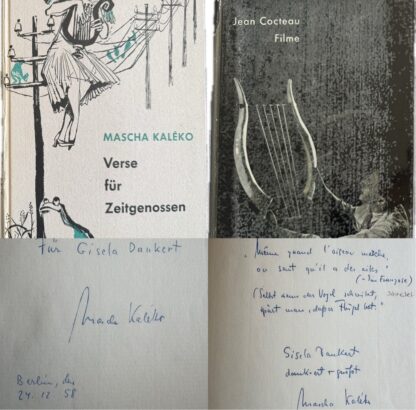 MASCHA KALÉKO
Verse
für
Zeitgenossen
Jean Cocteau
Filme
für Gisela Dankert
Mascha Kaléko
Berlin, den
24.12.58
„Même quand l'oiseau marche,
on sent qu'il a des ailes"
(Selbst wenn der Vogel schreitet,
spürt man, dass er Flügel hat."
Gisela Dankert
dank-ert + grüßt
Mascha Kaléko